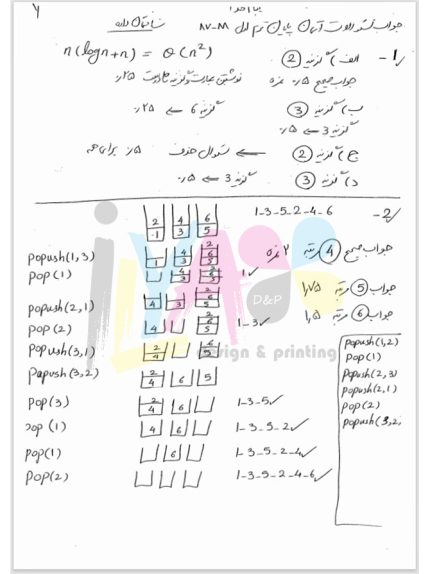 بنام خدا
جواب سئوالات آزمون پایان ترم اول ۸۷-۸۸ ساختمان داده
1- الف) گزینه 2 n(logn+n) = θ(n²)
جواب صحیح ۵٪ نمره نوشتن عبارت و گزینه نادرست ۲۵٪
ب) گزینه 3 گزینه 6 ← ۲۵٪
گزینه 3 ← ۵٪
ج) گزینه 2 ← سئوال حذف ۵٪ برای همه
د) گزینه 3 گزینه 3 ← ۵٪
2- 1-3-5-2-4-6
2 4 6
1 3 5
جواب صحیح 4 مرتبه ۲ نمره
popush(1,3)
pop(1) 1✓
جواب 5 مرتبه ۱,۷۵
popush(2,1)
جواب 6 مرتبه ۱,۵
pop(2) 1-3✓
popush(3,1)
popush(3,2)
pop(3) 1-3-5✓
pop(1) 1-3-5-2✓
pop(1) 1-3-5-2-4✓
pop(2) 1-3-5-2-4-6✓
popush(1,2)
pop(1)
popush(2,3)
popush(2,1)
pop(2)
popush(3,2)
D&P
design & printing